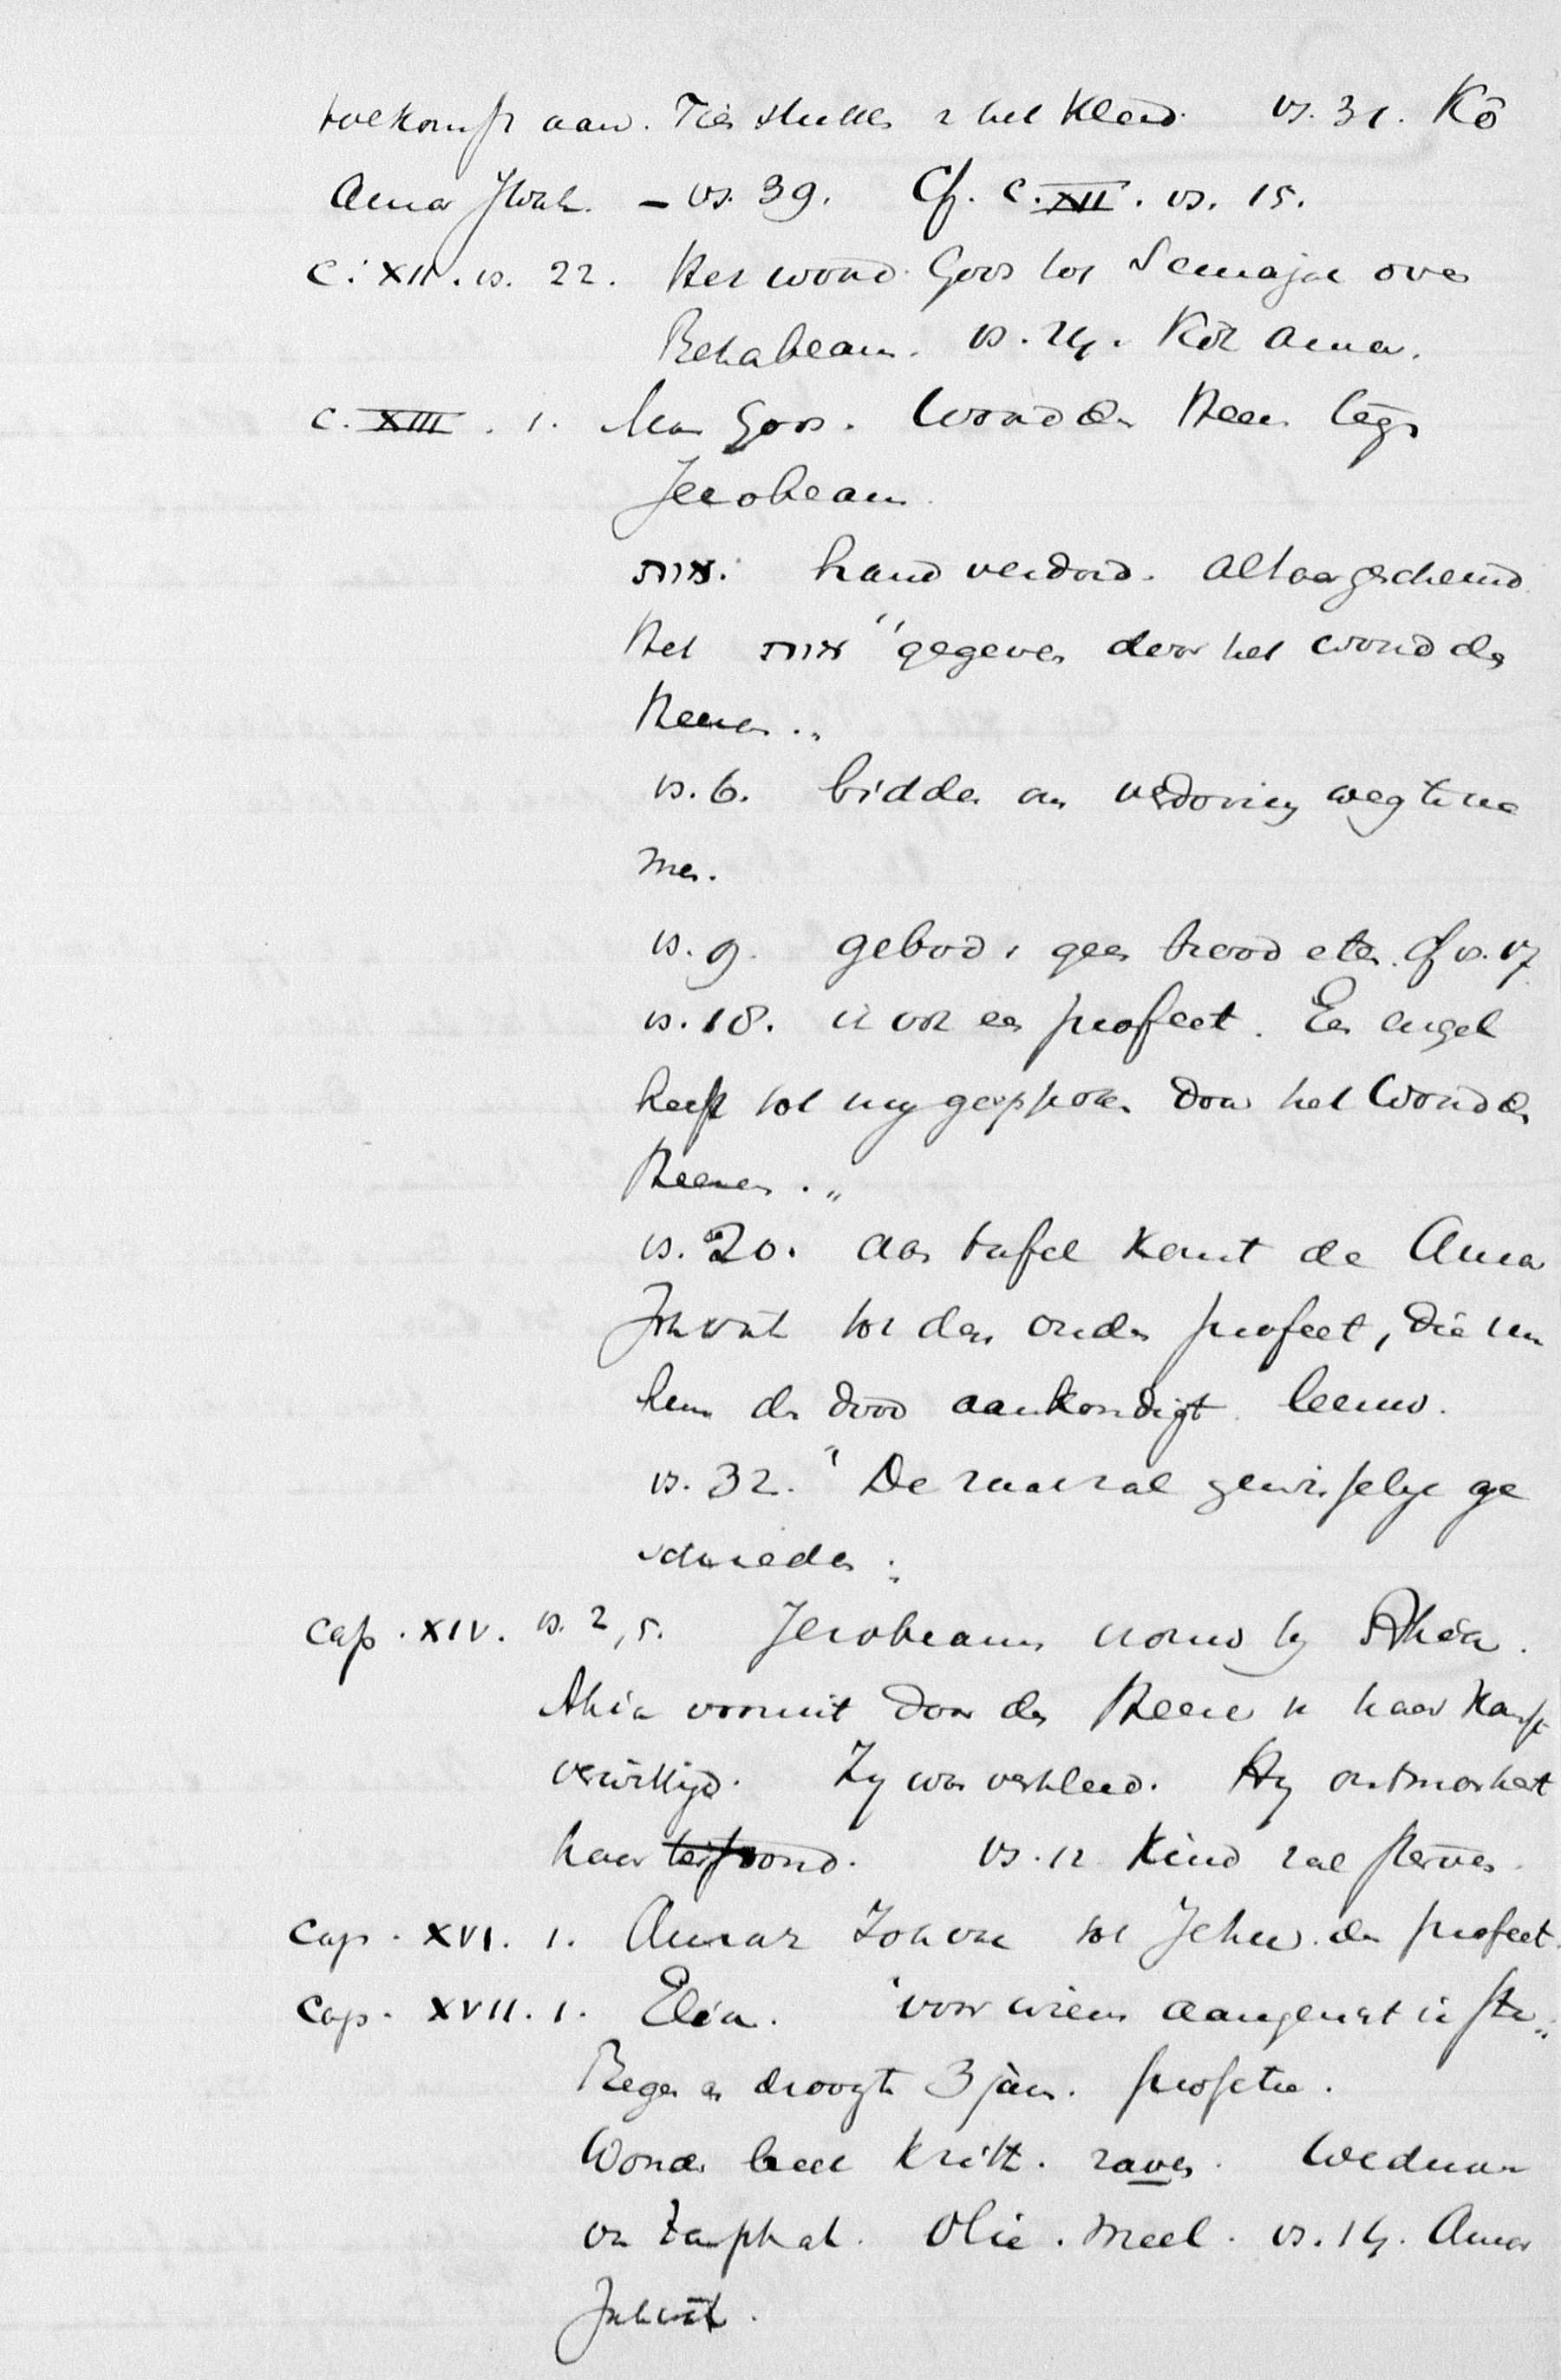 toekomst aan. Tien stukken v het kleed. vs. 31. Kō
Amar Jhvh. – vs. 39. Cf. c. XII. vs. 15.
c. XII. vs. 22. Het woord Gods tot Semaja over
Rehabeam. vs. 24. Kōh amar.
c. XIII. 1. Man Gods. Woord des Heeren tegen
Jerobeam.
מות. hand verdord. altaar gescheurd.
Het "gegeven door het woord des
Heeren."
vs. 6. bidden om verdorring weg te ne
men.
vs. 9. gebod: geen brood eten. Cf vs. 17
vs. 18. ik ook een profeet. Een engel
heeft tot mij gesproken door het Woord des
Heeren."
vs. 20. aan tafel komt de Amar
Jahvah tot den ouden profeet, die nu
hem den dood aankondigt. leeuw.
vs. 32. "De zaak zal gewisselijk ge
schieden."
Cap. XIV. vs. 2, 5. Jerobeams vrouw bij Ahia.
Ahia vooruit door den Heere v haar komst
verwittigd. Zij was verkleed. Hij ontmaskert
haar terstond. vs. 12 Kind zal sterven.
Cap. XVI. 1. Amar Jahvah tot Jehu den profeet.
Cap. XVII. 1. Elia. "voor wiens aangezicht ik sta"
Regen en droogte 3 jaren. profetie.
Wonder beek Krith. raven. Weduwe
van Zarphat. Olie. Meel. vs. 14. Amar
Jahvah.